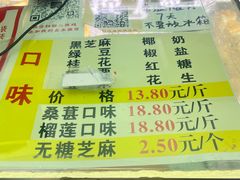 7天
不要放冰箱
口味
黑芝麻 椰奶
绿豆 奶盐
桂花 红糖
花生
价格 13.80元/斤
桑葚口味 18.80元/斤
榴莲口味 18.80元/斤
无糖芝麻 2.50元/个